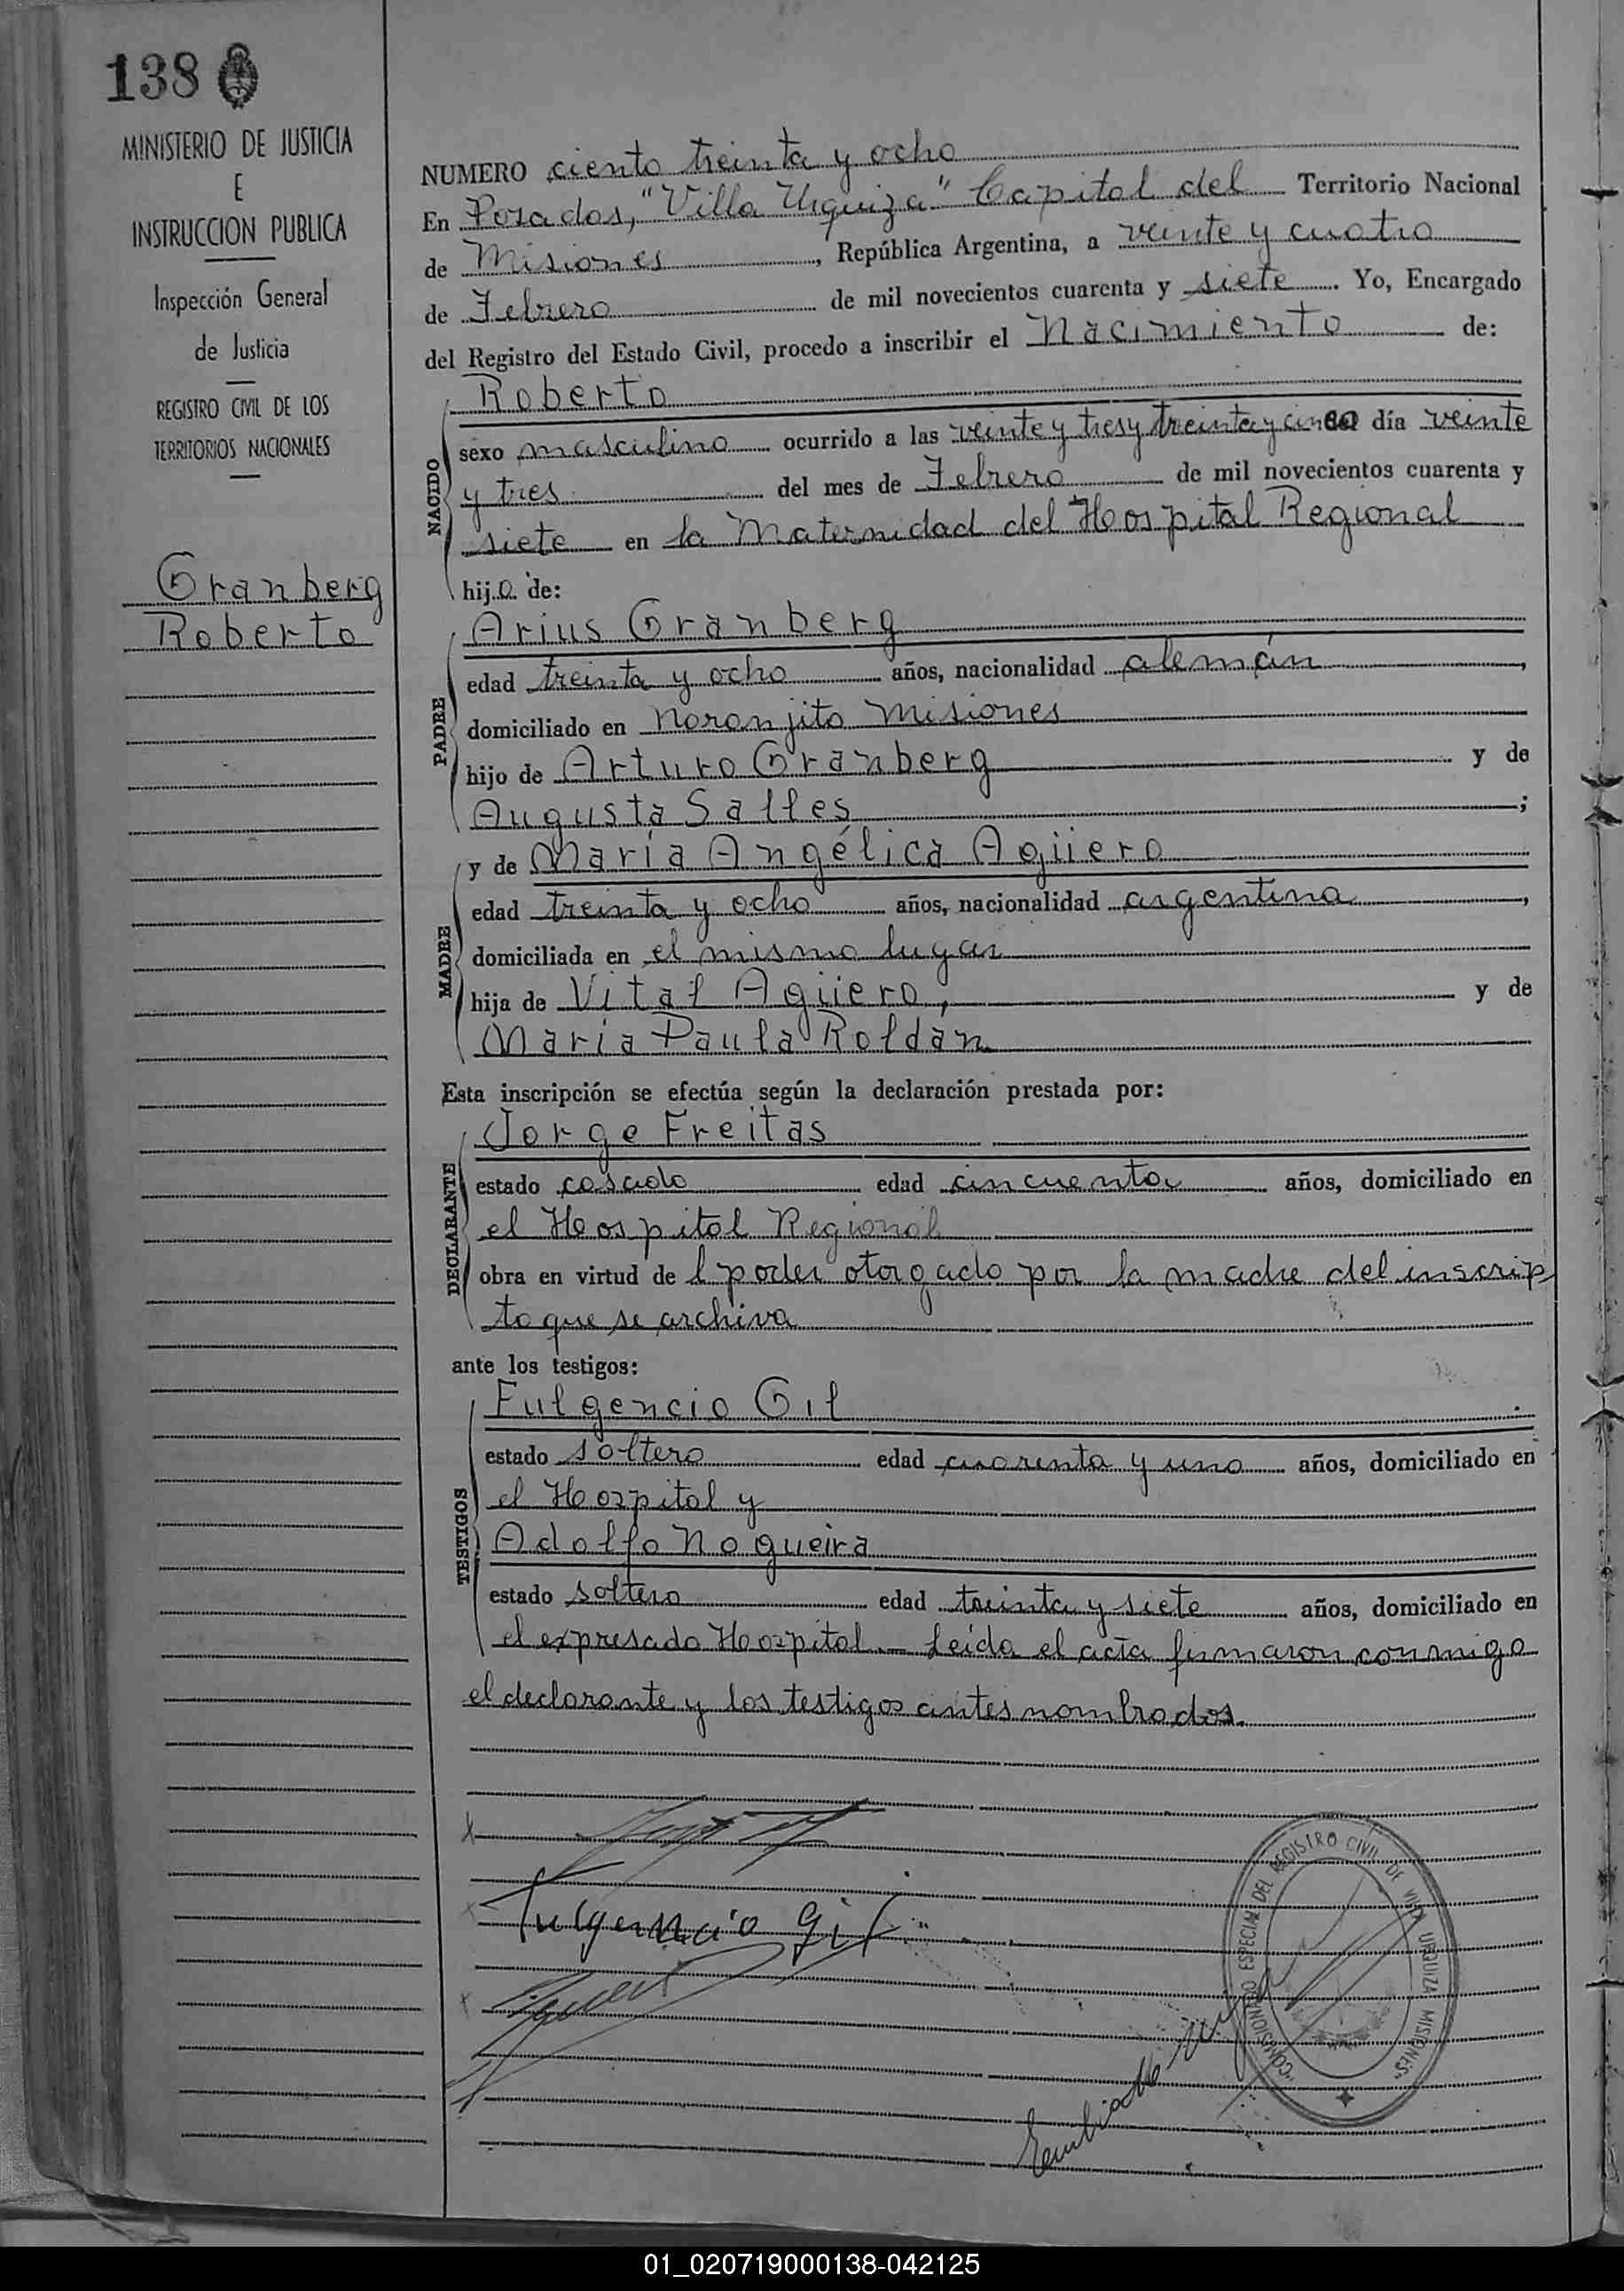 138
MINISTERIO DE JUSTICIA
E
INSTRUCCION PUBLICA
Inspección General
de Justicia
REGISTRO CIVIL DE LOS
TERRITORIOS NACIONALES
Granberg
Roberto
NUMERO ciento treinta y ocho
En Posadas, "Villa Urquiza" Capital del Territorio Nacional
de Misiones, República Argentina, a veinte y cuatro
de Febrero de mil novecientos cuarenta y siete. Yo, Encargado
del Registro del Estado Civil, procedo a inscribir el Nacimiento de:
NACIDO
Roberto
sexo masculino ocurrido a las veinte y tres y treinta y cinco día veinte
y tres del mes de Febrero de mil novecientos cuarenta y
siete en la Maternidad del Hospital Regional
hijo de:
PADRE
Arius Granberg
edad treinta y ocho años, nacionalidad alemán,
domiciliado en Naranjito Misiones
hijo de Arturo Granberg y de
Augusta Salles;
MADRE
y de María Angélica Agüero
edad treinta y ocho años, nacionalidad argentina,
domiciliada en el mismo lugar
hija de Vital Agüero, y de
María Paula Roldán
Esta inscripción se efectúa según la declaración prestada por:
DECLARANTE
Jorge Freitas
estado casado edad cincuenta años, domiciliado en
el Hospital Regional
obra en virtud de l poder otorgado por la madre del inscrip
to que se archiva
ante los testigos:
TESTIGOS
Fulgencio Gil
estado soltero edad cuarenta y uno años, domiciliado en
el Hospital y
Adolfo Nogueira
estado soltero edad treinta y siete años, domiciliado en
el expresado Hospital. Leída el acta firmaron conmigo
el declarante y los testigos antes nombrados.
Fulgencio Gil
COMISIONADO ESPECIAL DEL REGISTRO CIVIL DE VILLA URQUIZA MISIONES
01_020719000138-042125